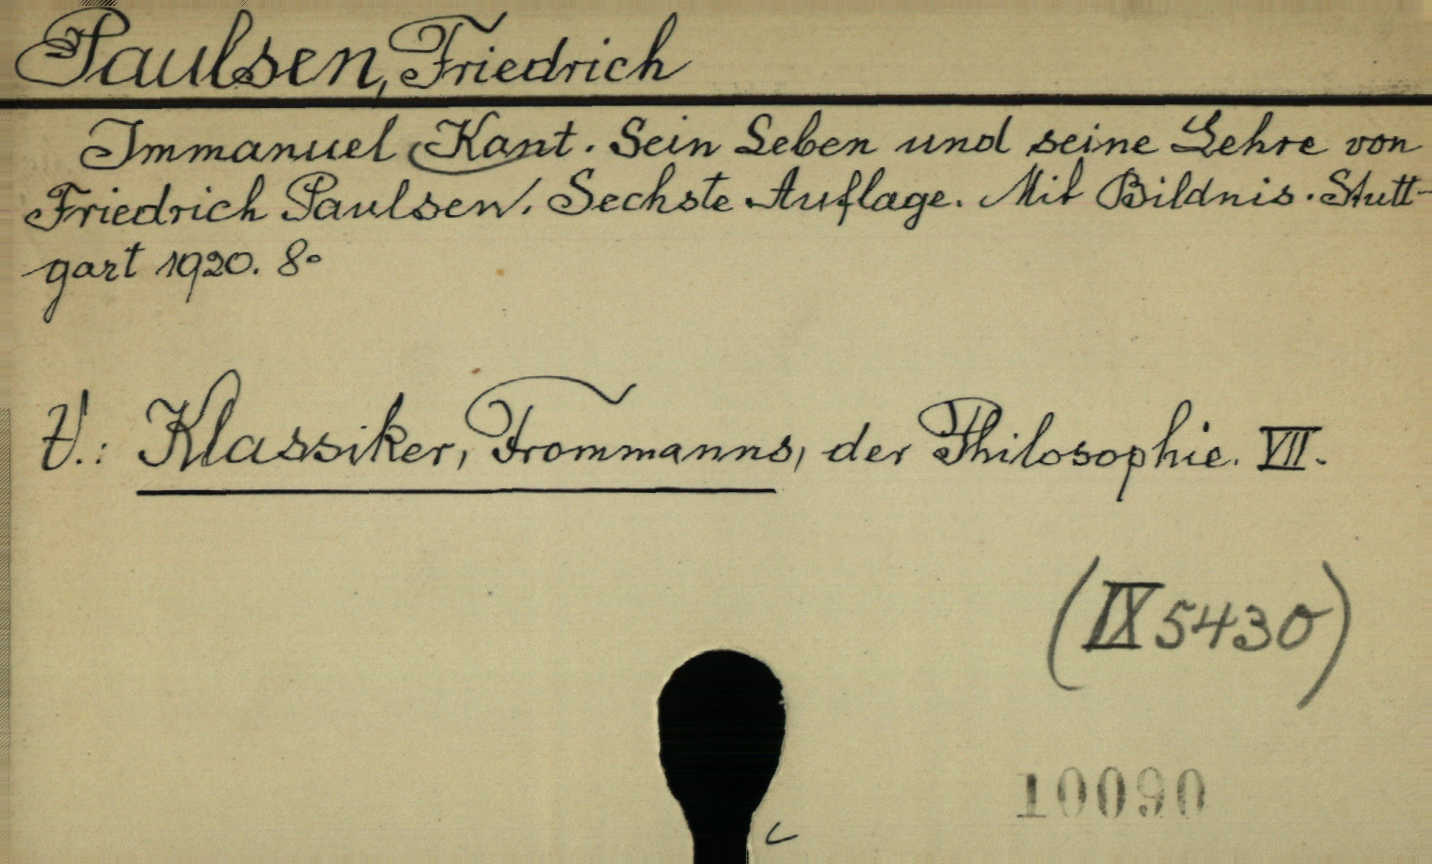 Paulsen, Friedrich
Immanuel Kant. Sein Leben und seine Lehre von
Friedrich Paulsen. Sechste Auflage. Mit Bildnis. Stutt-
gart 1920. 8°
V.: Klassiker, Frommanns, der Philosophie. VII.
(IX 5430)
10090